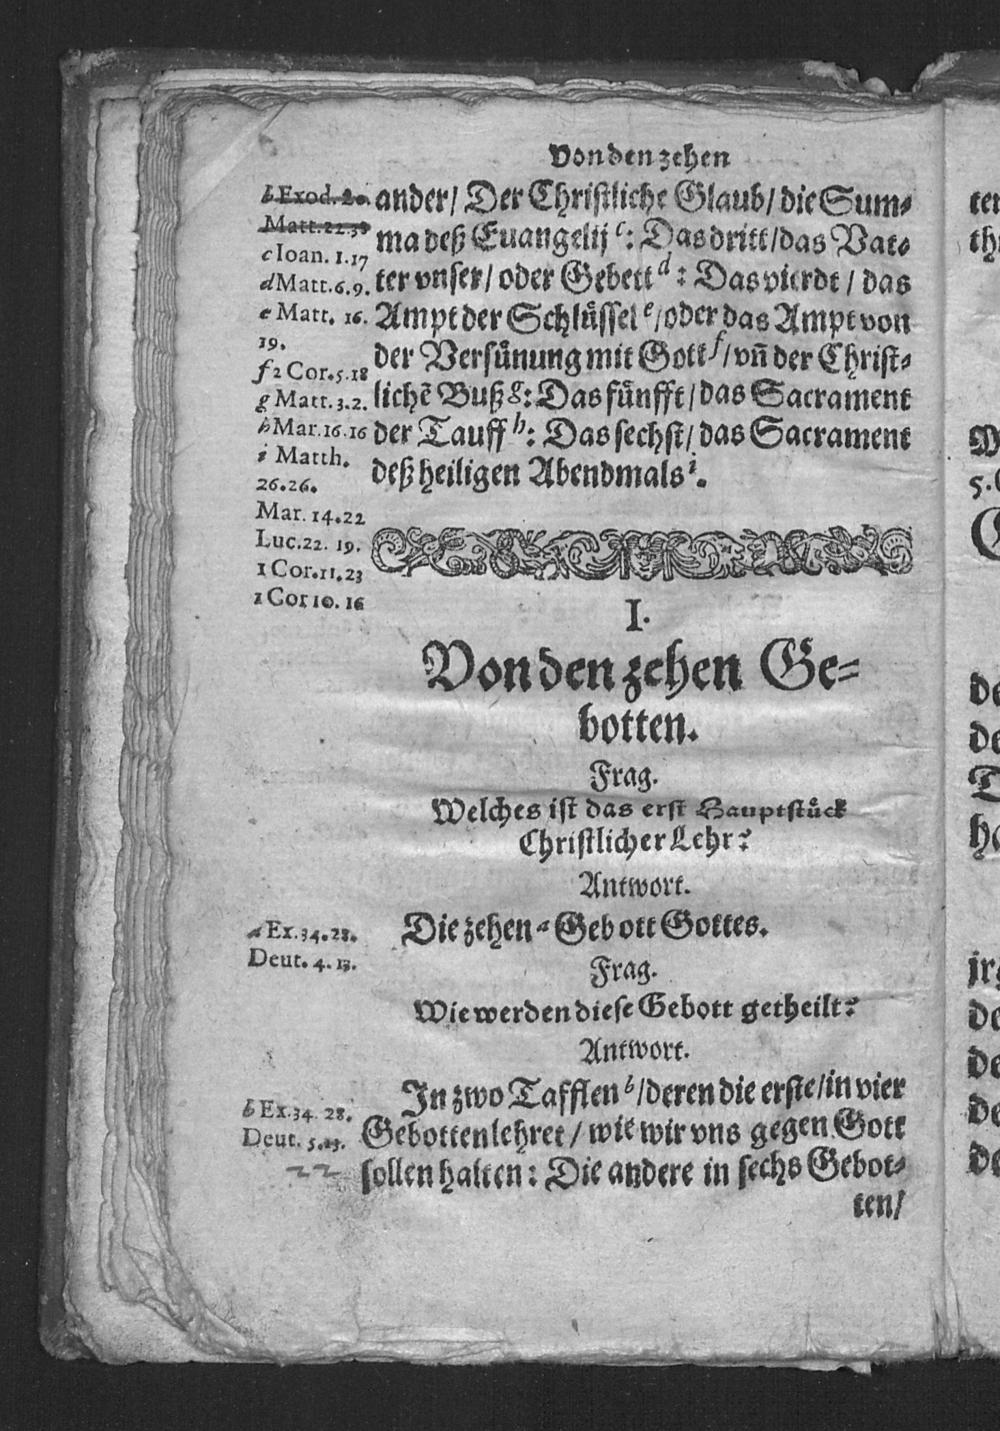 Von den zehen
b Exod. 20.
Matt. 22.
c Ioan. 1.17
d Matt. 6.9.
e Matt. 16.
19.
f 2 Cor. 5.18
g Matt. 3.2.
h Mar. 16.16
i Matth.
26.26.
Mar. 14.22
Luc. 22. 19.
1 Cor. 11.23
1 Cor 10. 16
ander / Der Christliche Glaub / die Sum⸗
ma deß Euangelij c: Das dritt / das Vat⸗
ter vnser / oder Gebett d: Das vierdt / das
Ampt der Schlüssel e / oder das Ampt von
der Versünung mit Gott f / vn̄ der Christ⸗
lichē Buß g: Das fünfft / das Sacrament
der Tauff h: Das sechst / das Sacrament
deß heiligen Abendmals i.
I.
Von den zehen Ge⸗
botten.
Frag.
Welches ist das erst Hauptstück
Christlicher Lehr?
Antwort.
a Ex. 34. 28.
Deut. 4. 13.
Die zehen a Gebott Gottes.
Frag.
Wie werden diese Gebott getheilt?
Antwort.
b Ex. 34. 28.
Deut. 5.
22
In zwo Tafflen b / deren die erste / in vier
Gebotten lehret / wie wir vns gegen Gott
sollen halten: Die andere in sechs Gebot⸗
ten /